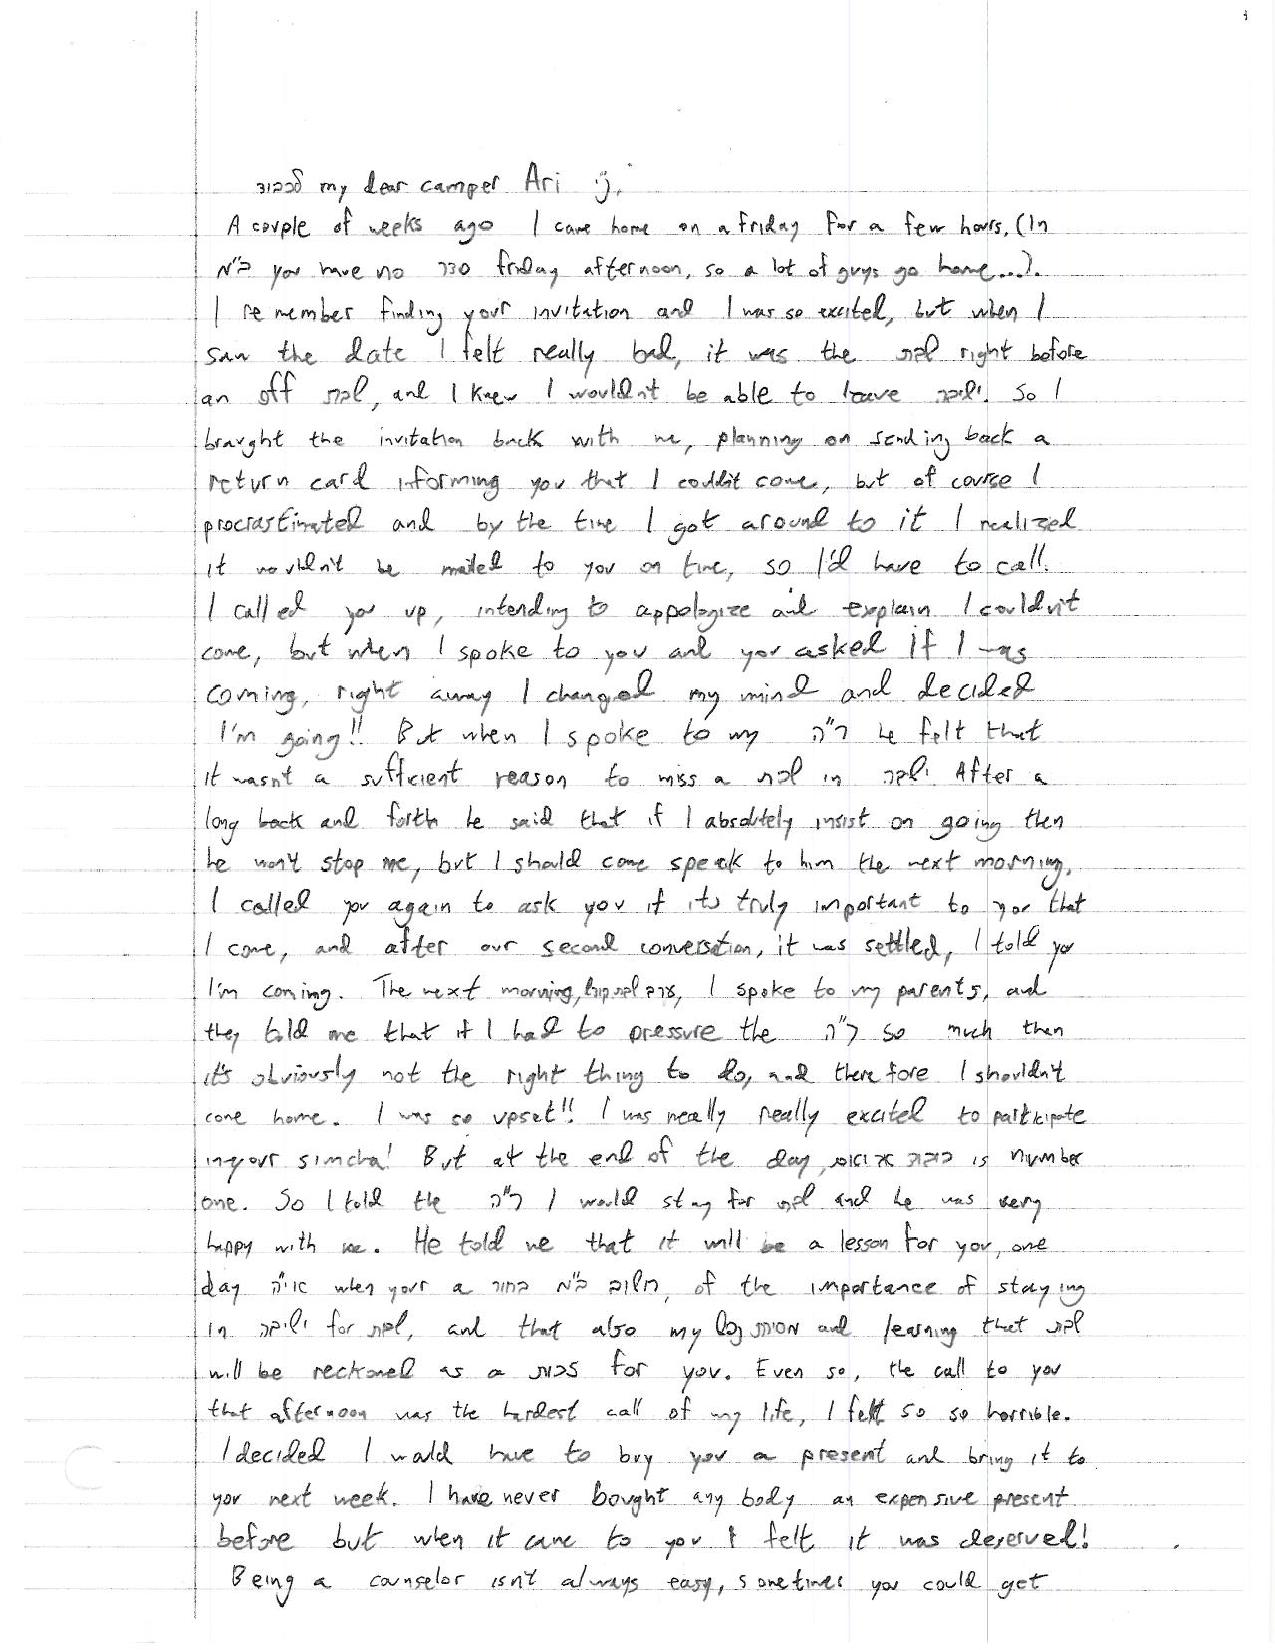 לכבוד my dear camper Ari נ"י,
A couple of weeks ago I came home on a friday for a few hours. (In
ביהמ"ד you have no סדר friday afternoon, so a lot of guys go home...).
I remember finding your invitation and I was so excited, but when I
saw the date I felt really bad, it was the שבת right before
an off שבת, and I knew I wouldn't be able to leave ישיבה. So I
braught the invitation back with me, planning on sending back a
return card informing you that I couldn't come, but of course I
procrastinated and by the time I got around to it I realized
it wouldn't be mailed to you on time, so I'd have to call.
I called you up, intending to appologize and explain I couldn't
come, but when I spoke to you and you asked if I was
coming, right away I changed my mind and decided
I'm going!! But when I spoke to my ר"ה he felt that
it wasn't a sufficient reason to miss a שבת in ישיבה. After a
long back and forth he said that if I absolutely insist on going then
he won't stop me, but I should come speak to him the next morning.
I called you again to ask you if its truly important to you that
I come, and after our second conversation, it was settled, I told you
I'm coming. The next morning, ערב שבת קודש, I spoke to my parents, and
they told me that if I had to pressure the ר"ה so much then
it's obviously not the right thing to do, and therefore I shouldn't
come home. I was so upset!! I was really really excited to participate
in your simcha! But at the end of the day, כיבוד אב ואם is number
one. So I told the ר"ה I would stay for שבת and he was very
happy with me. He told me that it will be a lesson for you, one
day אי"ה when your a בחור ביהמ"ד חשוב, of the importance of staying
in ישיבה for שבת, and that also my and learning that שבת
will be reckoned as a זכות for you. Even so, the call to you
that afternoon was the hardest call of my life, I felt so so horrible.
I decided I would have to buy you a present and bring it to
you next week. I have never bought any body an expensive present
before but when it came to you I felt it was deserved!
Being a counselor isn't always easy, sometimes you could get